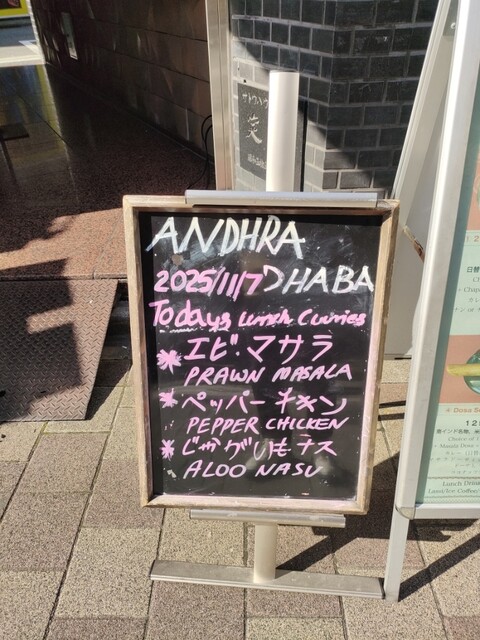 ANDHRA
2025/11/7 DHABA
Todays Lunch Curries
* エビ・マサラ
PRAWN MASALA
* ペッパーチキン
PEPPER CHICKEN
* じゃがいもナス
ALOO NASU
Lunch Drink